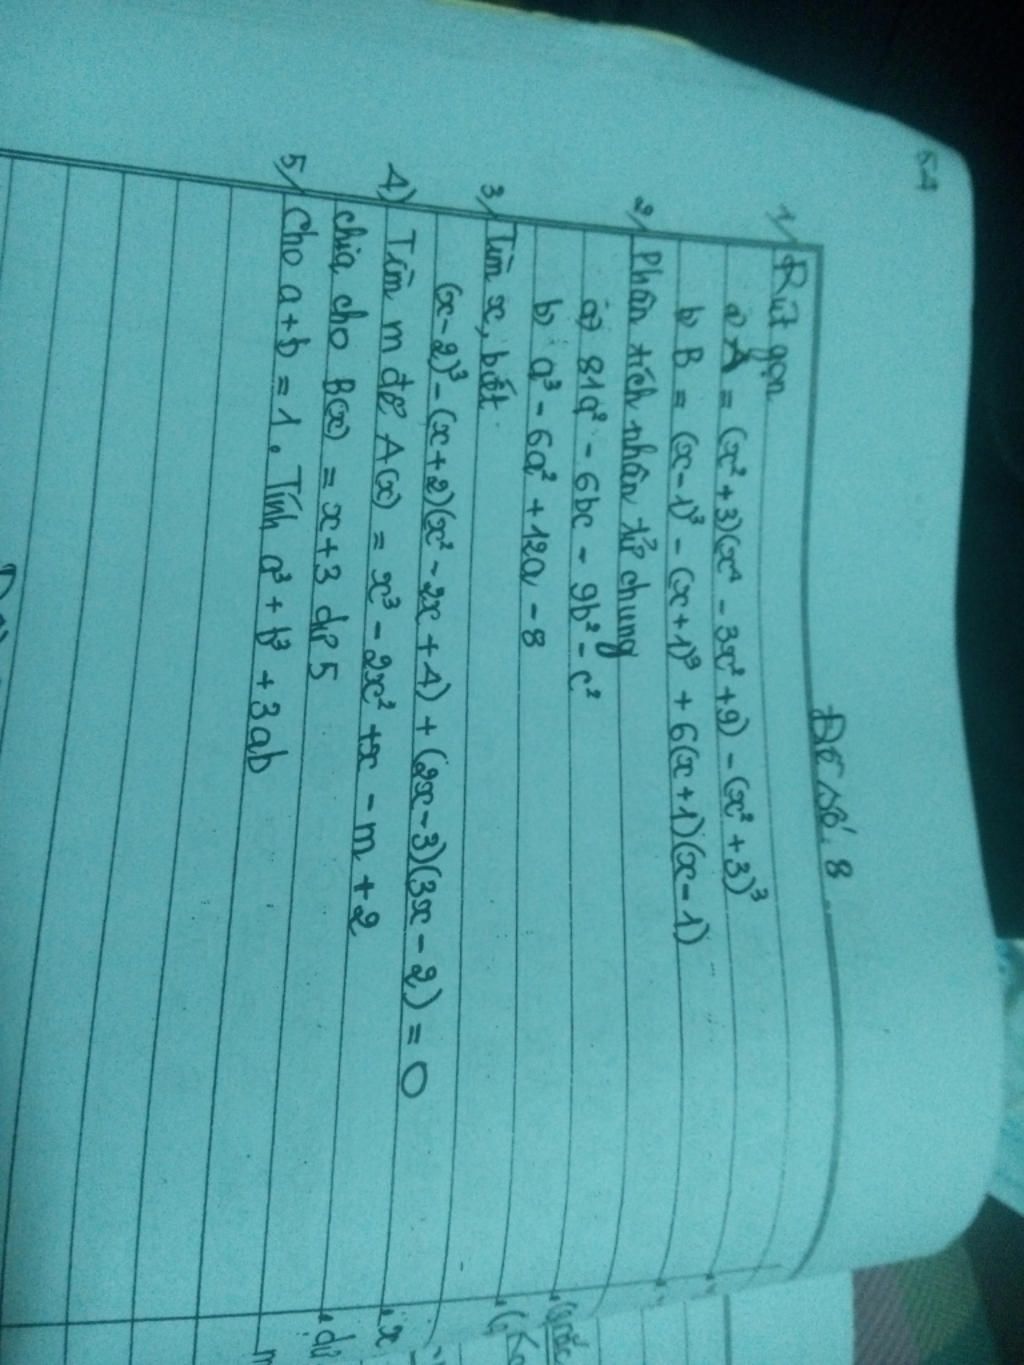 54
Đề số: 8
1/ Rút gọn
a) A = (x² + 3)(x⁴ - 3x² + 9) - (x² + 3)³
b) B = (x - 1)³ - (x + 1)³ + 6(x + 1)(x - 1)
2/ Phân tích nhân tử chung
a) 81a² - 6bc - 9b² - c²
b) a³ - 6a² + 12a - 8
3/ Tìm x, biết
(x - 2)³ - (x + 2)(x² - 2x + 4) + (2x - 3)(3x - 2) = 0
4) Tìm m để A(x) = x³ - 2x² + x - m + 2
chia cho B(x) = x + 3 dư 5
5/ Cho a + b = 1. Tính a³ + b³ + 3ab